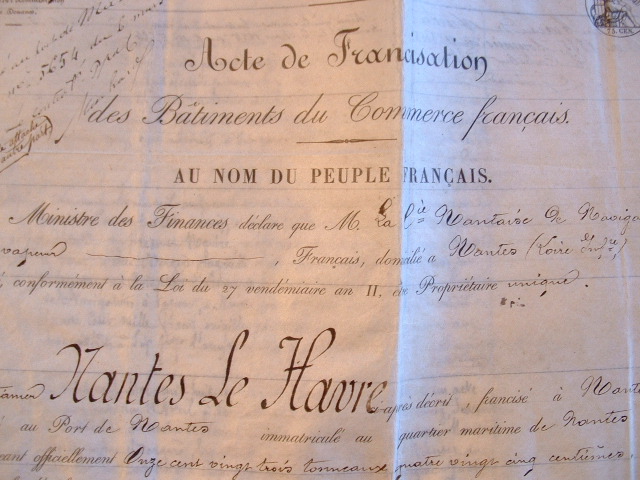 5654 du 6 mars
Acte de Francisation
des Bâtiments du Commerce français.
AU NOM DU PEUPLE FRANÇAIS.
Ministre des Finances déclare que M. la Cie Nantaise De Naviga
vapeur , Français, domicilié à Nantes (Loire Inf.re)
conformément à la Loi du 27 vendémiaire an II, est Propriétaire unique.
Nantes Le Havre ci-après décrit, francisé à Nant
au Port de Nantes immatriculé au quartier maritime de Nantes
officiellement Onze cent vingt trois tonneaux quatre vingt cinq centièmes